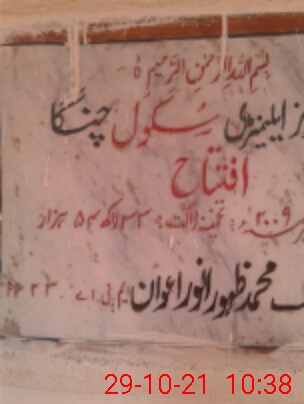 بسم اللہ الرحمن الرحیم ہ
ایلیمنٹری سکول چنکا
افتتاح
۲۰۰۹ء تخمینہ لاگت: ۳۳ لاکھ ۵۴ ہزار
محمد ظہور انور اعوان ایم پی اے
29-10-21 10:38